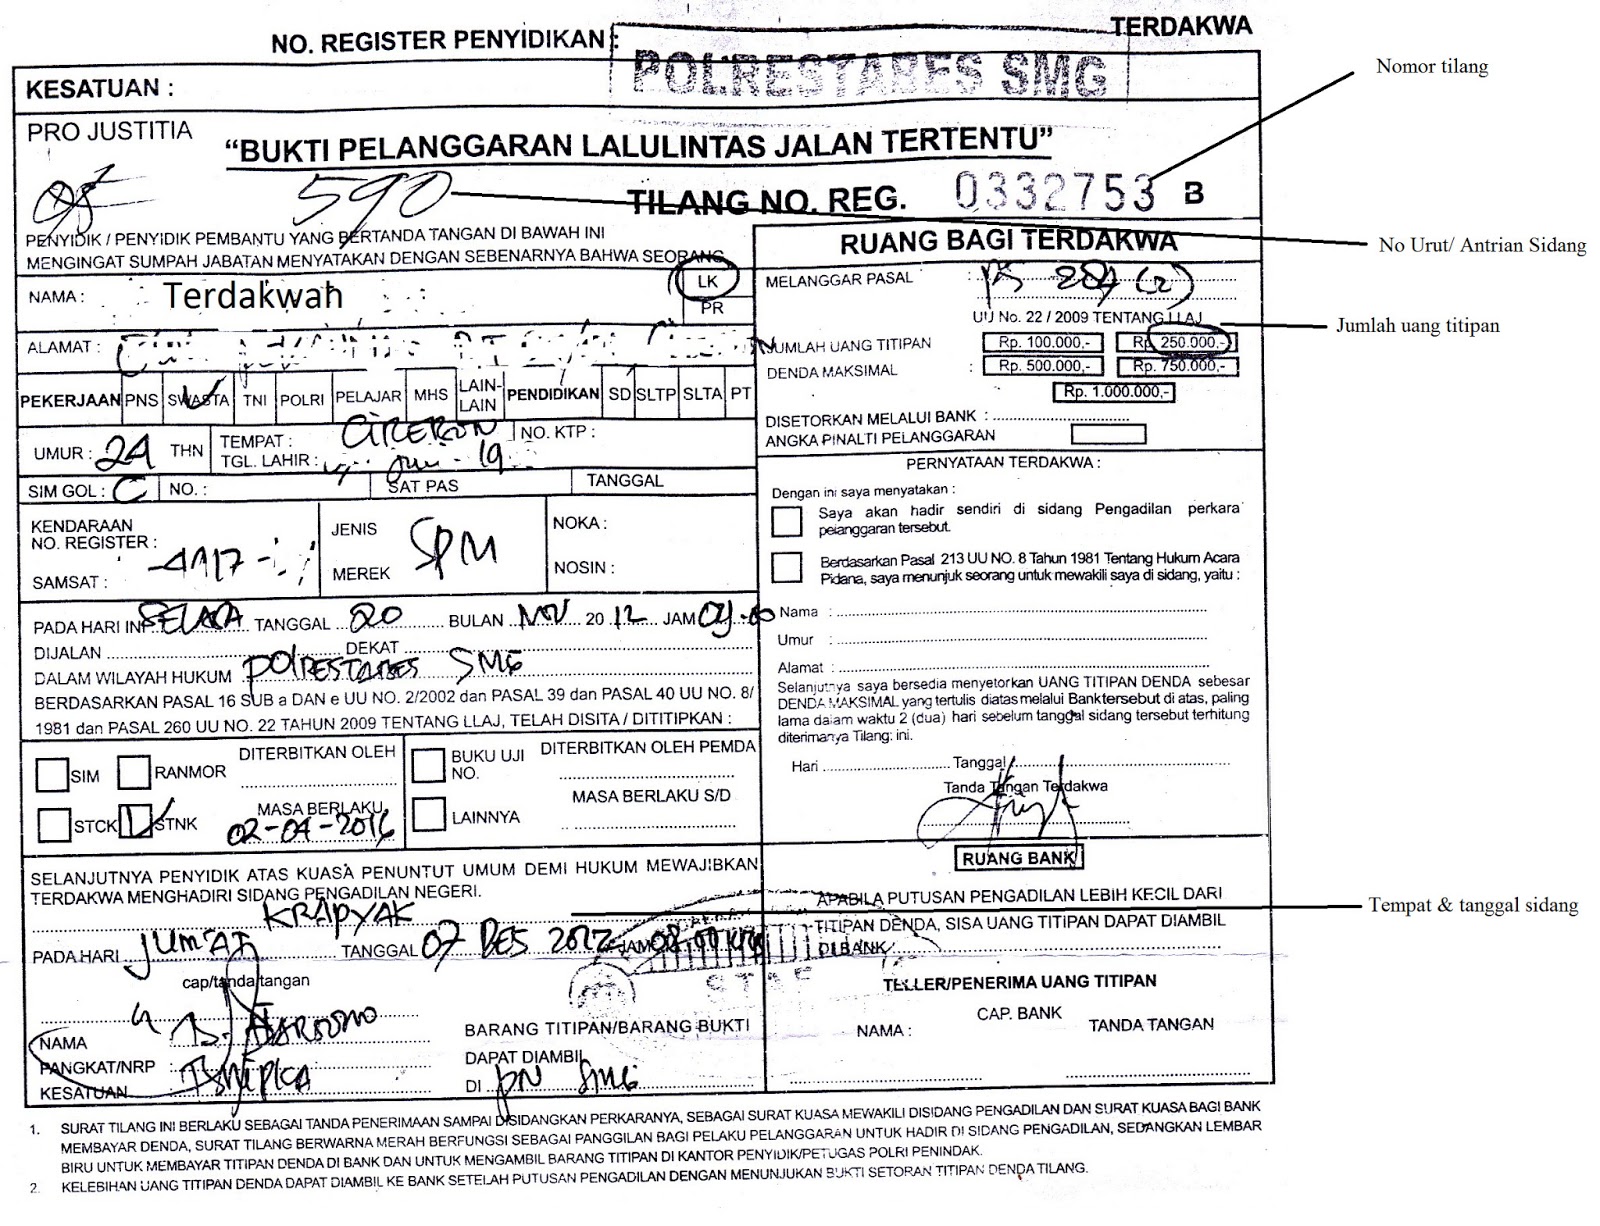 TERDAKWA
NO. REGISTER PENYIDIKAN :
POLRESTABES SMG
Nomor tilang
KESATUAN :
PRO JUSTITIA
"BUKTI PELANGGARAN LALULINTAS JALAN TERTENTU"
590
TILANG NO. REG. 0332753 B
PENYIDIK / PENYIDIK PEMBANTU YANG BERTANDA TANGAN DI BAWAH INI
MENGINGAT SUMPAH JABATAN MENYATAKAN DENGAN SEBENARNYA BAHWA SEORANG
No Urut/ Antrian Sidang
NAMA : Terdakwah
LK
PR
ALAMAT :
PEKERJAAN PNS SWASTA TNI POLRI PELAJAR MHS LAIN-LAIN PENDIDIKAN SD SLTP SLTA PT
UMUR : 24 THN
TEMPAT : CIREBON
TGL. LAHIR : Juni - 19
NO. KTP :
SIM GOL : C
NO. :
SAT PAS
TANGGAL
KENDARAAN
NO. REGISTER : 4117
SAMSAT :
JENIS
MEREK
SPM
NOKA :
NOSIN :
PADA HARI INI SELASA TANGGAL 20 BULAN NOV 2012 JAM 09.00
DIJALAN DEKAT
DALAM WILAYAH HUKUM POLRESTABES SMG
BERDASARKAN PASAL 16 SUB a DAN e UU NO. 2/2002 dan PASAL 39 dan PASAL 40 UU NO. 8/
1981 dan PASAL 260 UU NO. 22 TAHUN 2009 TENTANG LLAJ, TELAH DISITA / DITITIPKAN :
SIM
RANMOR
DITERBITKAN OLEH
STCK
STNK
MASA BERLAKU
02-04-2016
BUKU UJI
NO.
DITERBITKAN OLEH PEMDA
LAINNYA
MASA BERLAKU S/D
SELANJUTNYA PENYIDIK ATAS KUASA PENUNTUT UMUM DEMI HUKUM MEWAJIBKAN
TERDAKWA MENGHADIRI SIDANG PENGADILAN NEGERI.
KRAPYAK
PADA HARI JUM'AT TANGGAL 07 DES 2012 JAM 08.00
cap/tanda tangan
NAMA
PANGKAT/NRP
KESATUAN
BARANG TITIPAN/BARANG BUKTI
DAPAT DIAMBIL
DI PN SMG
RUANG BAGI TERDAKWA
MELANGGAR PASAL : ps 287 (2)
UU No. 22 / 2009 TENTANG LLAJ
Jumlah uang titipan
JUMLAH UANG TITIPAN Rp. 100.000,- Rp. 250.000,-
DENDA MAKSIMAL : Rp. 500.000,- Rp. 750.000,-
Rp. 1.000.000,-
DISETORKAN MELALUI BANK :
ANGKA PINALTI PELANGGARAN
PERNYATAAN TERDAKWA :
Dengan ini saya menyatakan :
Saya akan hadir sendiri di sidang Pengadilan perkara
pelanggaran tersebut.
Berdasarkan Pasal 213 UU NO. 8 Tahun 1981 Tentang Hukum Acara
Pidana, saya menunjuk seorang untuk mewakili saya di sidang, yaitu :
Nama :
Umur :
Alamat :
Selanjutnya saya bersedia menyetorkan UANG TITIPAN DENDA sebesar
DENDA MAKSIMAL yang tertulis diatas melalui Bank tersebut di atas, paling
lama dalam waktu 2 (dua) hari sebelum tanggal sidang tersebut terhitung
diterimanya Tilang: ini.
Hari Tanggal
Tanda Tangan Terdakwa
RUANG BANK
APABILA PUTUSAN PENGADILAN LEBIH KECIL DARI
TITIPAN DENDA, SISA UANG TITIPAN DAPAT DIAMBIL
DI BANK
Tempat & tanggal sidang
TELLER/PENERIMA UANG TITIPAN
CAP. BANK
NAMA :
TANDA TANGAN
1. SURAT TILANG INI BERLAKU SEBAGAI TANDA PENERIMAAN SAMPAI DISIDANGKAN PERKARANYA, SEBAGAI SURAT KUASA MEWAKILI DISIDANG PENGADILAN DAN SURAT KUASA BAGI BANK
MEMBAYAR DENDA, SURAT TILANG BERWARNA MERAH BERFUNGSI SEBAGAI PANGGILAN BAGI PELAKU PELANGGARAN UNTUK HADIR DI SIDANG PENGADILAN, SEDANGKAN LEMBAR
BIRU UNTUK MEMBAYAR TITIPAN DENDA DI BANK DAN UNTUK MENGAMBIL BARANG TITIPAN DI KANTOR PENYIDIK/PETUGAS POLRI PENINDAK.
2. KELEBIHAN UANG TITIPAN DENDA DAPAT DIAMBIL KE BANK SETELAH PUTUSAN PENGADILAN DENGAN MENUNJUKAN BUKTI SETORAN TITIPAN DENDA TILANG.